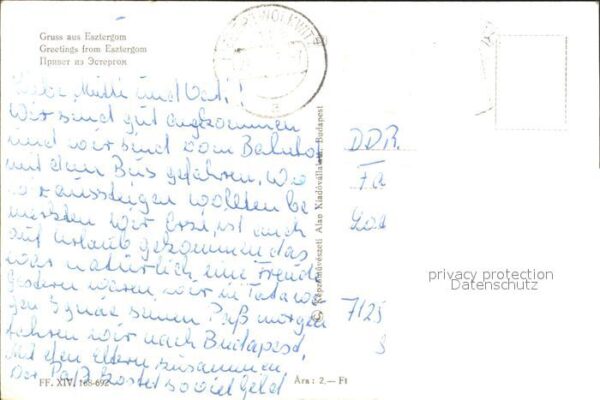 Gruss aus Esztergom
Greetings from Esztergom
Привет из Эстергом
Liebe Mutti und Vati!
Wir sind gut angekommen
und wir sind vom Bahnho
mit dem Bus gefahren. Wo
aussteigen wollten be
merkten wir Erzsi ist auch
auf Urlaub gekommen das
war natürlich eine Freud
Gestern waren wir in Tata
seinen Paß morgen
fahren wir nach Budapest,
Mit den Eltern zusammen.
Der Paß kostet soviel Geld
FF. XIV. 168-692
Ára: 2,— Ft
© Képzőművészeti Alap Kiadóvállalata, Budapest
DDR
Fa
7125
privacy protection
Datenschutz